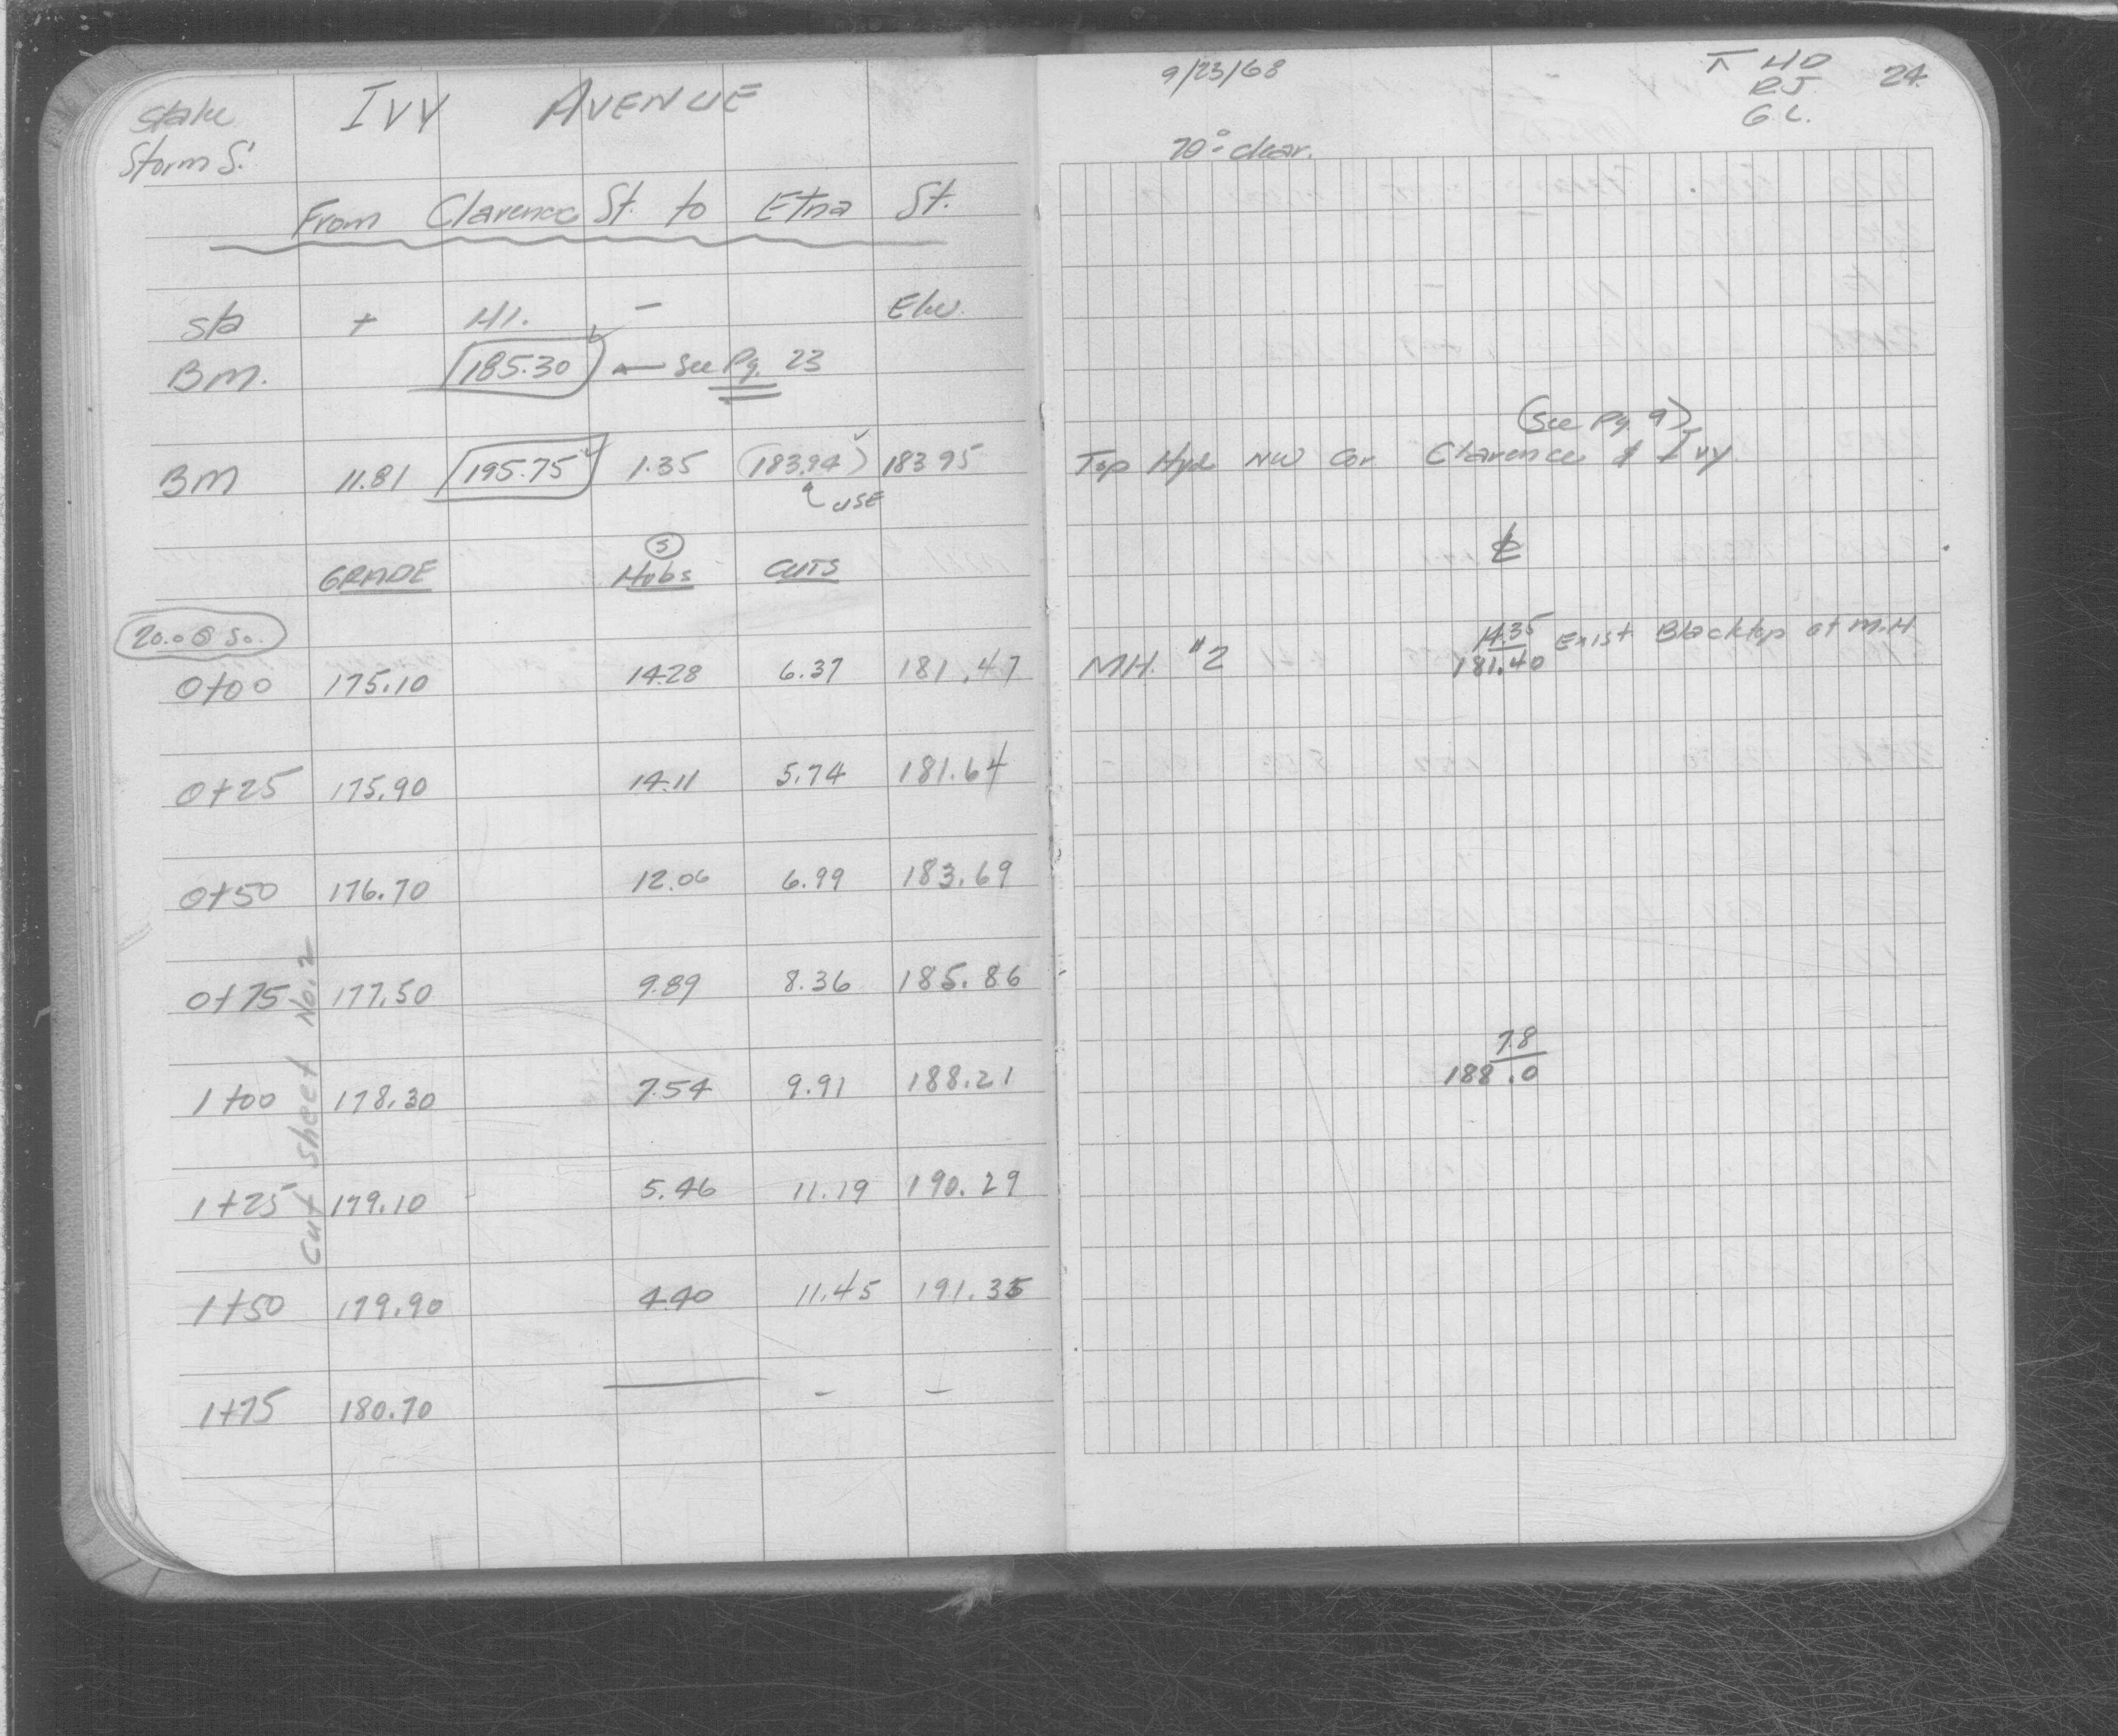 Stake
Storm S.
IVY AVENUE
From Clarence St. to Etna St.
Sta + H.I. - Elev.
B.M. 185.30 ← See Pg. 23
BM 11.81 195.75 1.35 (183.94) 183.95
USE
GRADE (S) Hubs CUTS
0+00 175.10 14.28 6.37 181.47
0+25 175.90 14.11 5.74 181.64
0+50 176.70 12.06 6.99 183.69
0+75 177.50 9.89 8.36 185.86
1+00 178.30 7.54 9.91 188.21
1+25 179.10 5.46 11.19 190.29
1+50 179.90 4.40 11.45 191.35
1+75 180.70 - -
Cut sheet No. 2
9/23/68
⊼ HD
RJ
G.L.
24
70° clear.
(See Pg 9)
Top Hyd NW Cor Clarence & Ivy
℄
MH. #2
14.35 Exist Blacktop at M.H
181.40
7.8
188.0